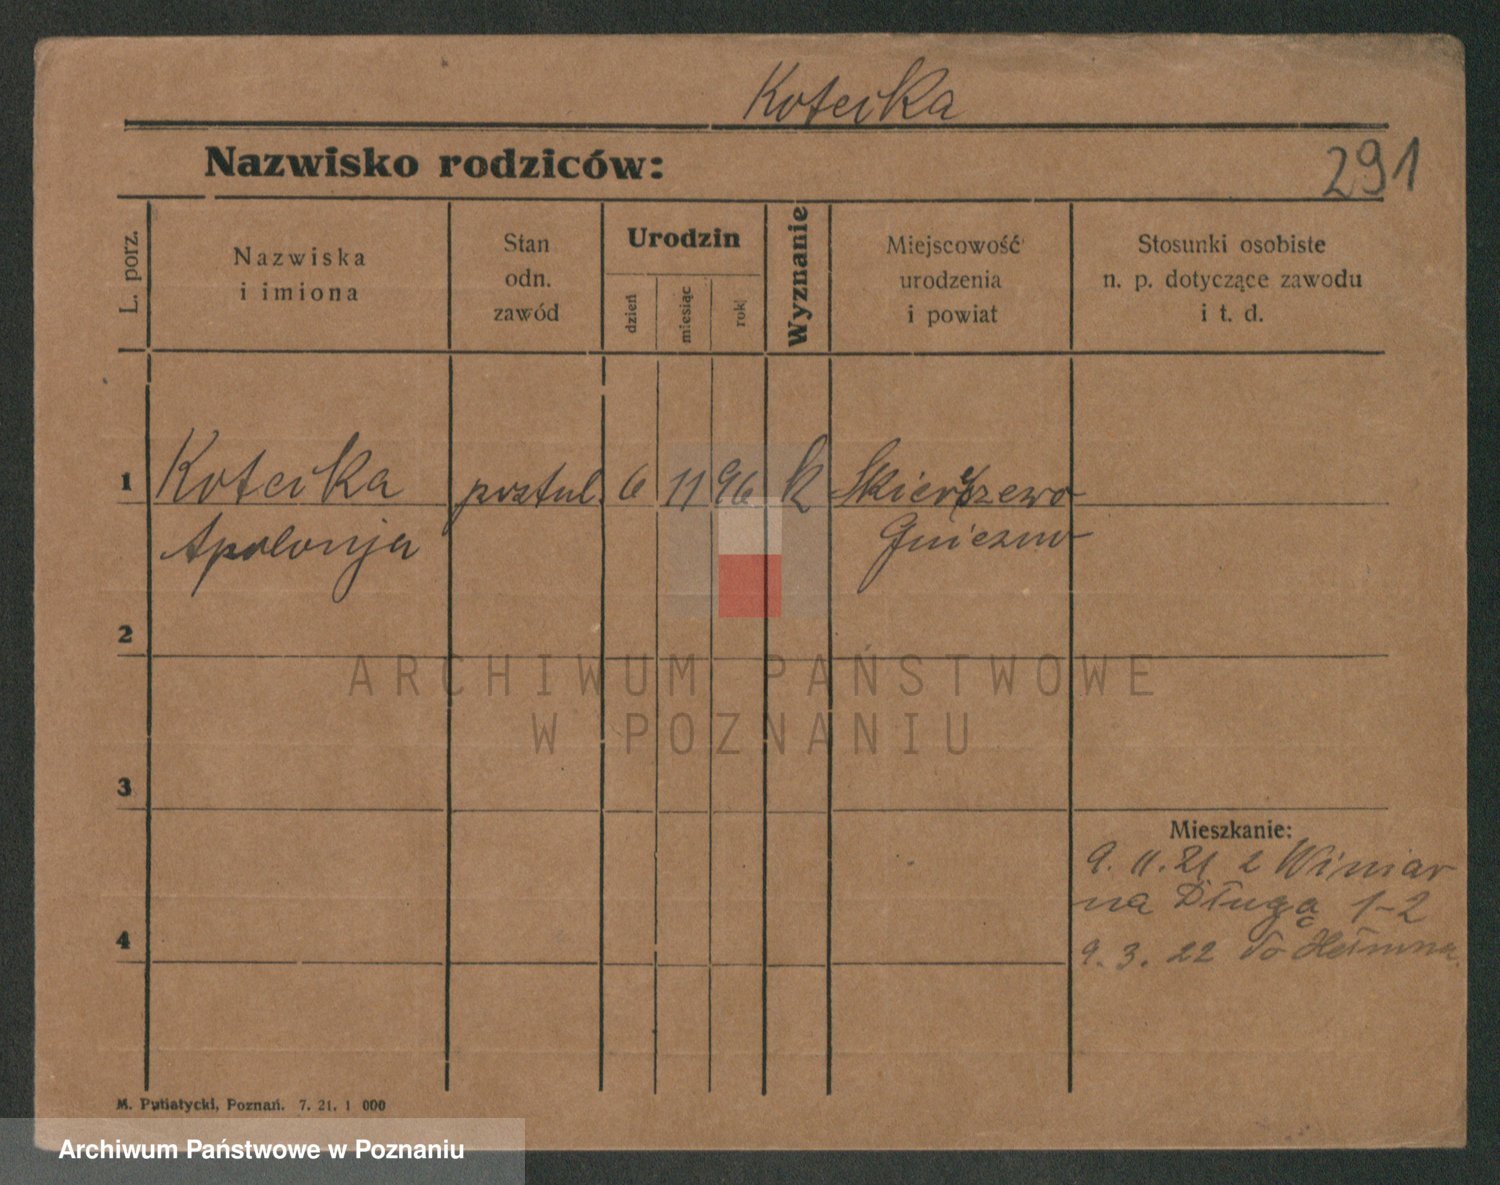 Koteika
Nazwisko rodziców:
291
L. porz.
Nazwiska
i imiona
Stan
odn.
zawód
Urodzin
dzień
miesiąc
rok
Wyznanie
Miejscowość
urodzenia
i powiat
Stosunki osobiste
n. p. dotyczące zawodu
i t. d.
1 Koteika postul. 6 11 96 k Skiereszewo
Apolonja Gniezno
2
ARCHIWUM PAŃSTWOWE
W POZNANIU
3
Mieszkanie:
9. 11. 21 z Winiar
na Długą 1-2
4
9. 3. 22 do Hełmna.
M. Putiatycki, Poznań. 7. 21. 1 000
Archiwum Państwowe w Poznaniu